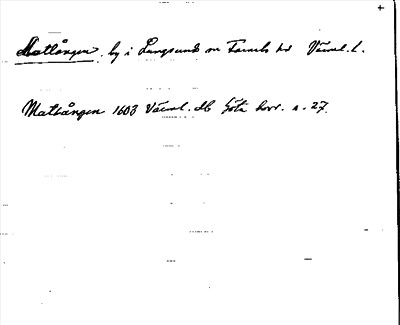 Matlången, by i Långserud sn Fornebo hd Värml. l.
Matlången 1603 Värml. db Göta hovr. s. 27.